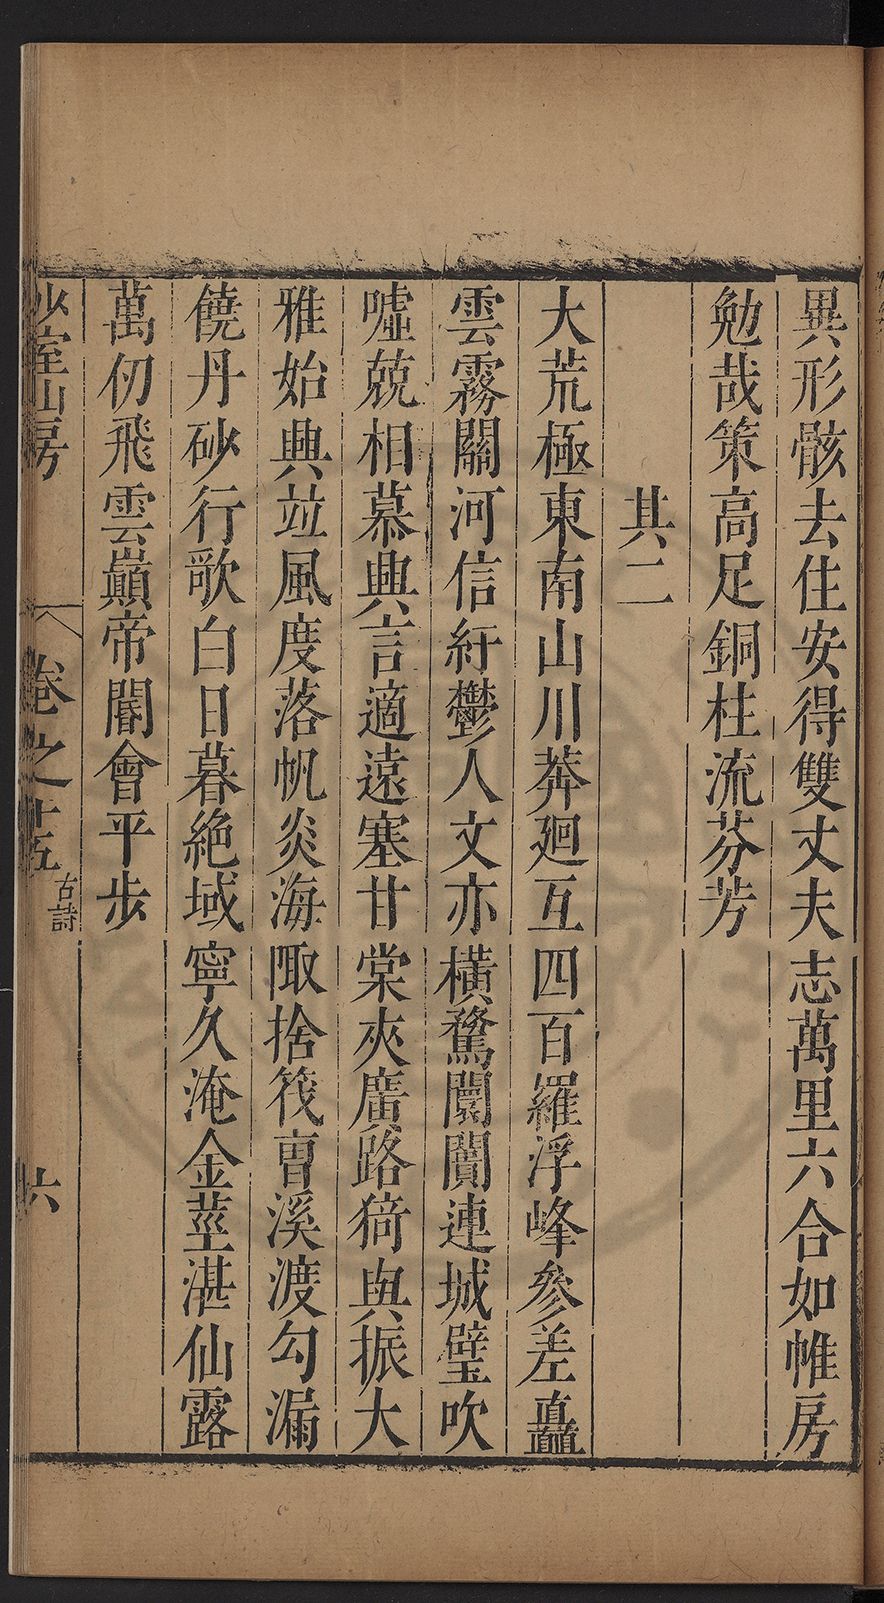 異形骸去住安得雙丈夫志萬里六合如帷房
勉哉策高足銅柱流芬芳
其二
大荒極東南山川莽廻互四百羅浮峰參差矗
雲霧關河信紆鬱人文亦橫騖闤闠連城璧吹
噓兢相慕興言適遠塞甘棠夾廣路猗與振大
雅始典竝風度落帆炎海陬捨筏曺溪渡勾漏
饒丹砂行歌白日暮絶域寧久淹金莖湛仙露
萬仞飛雲巔帝閽會平步
少室山房
卷之十五
古詩
六